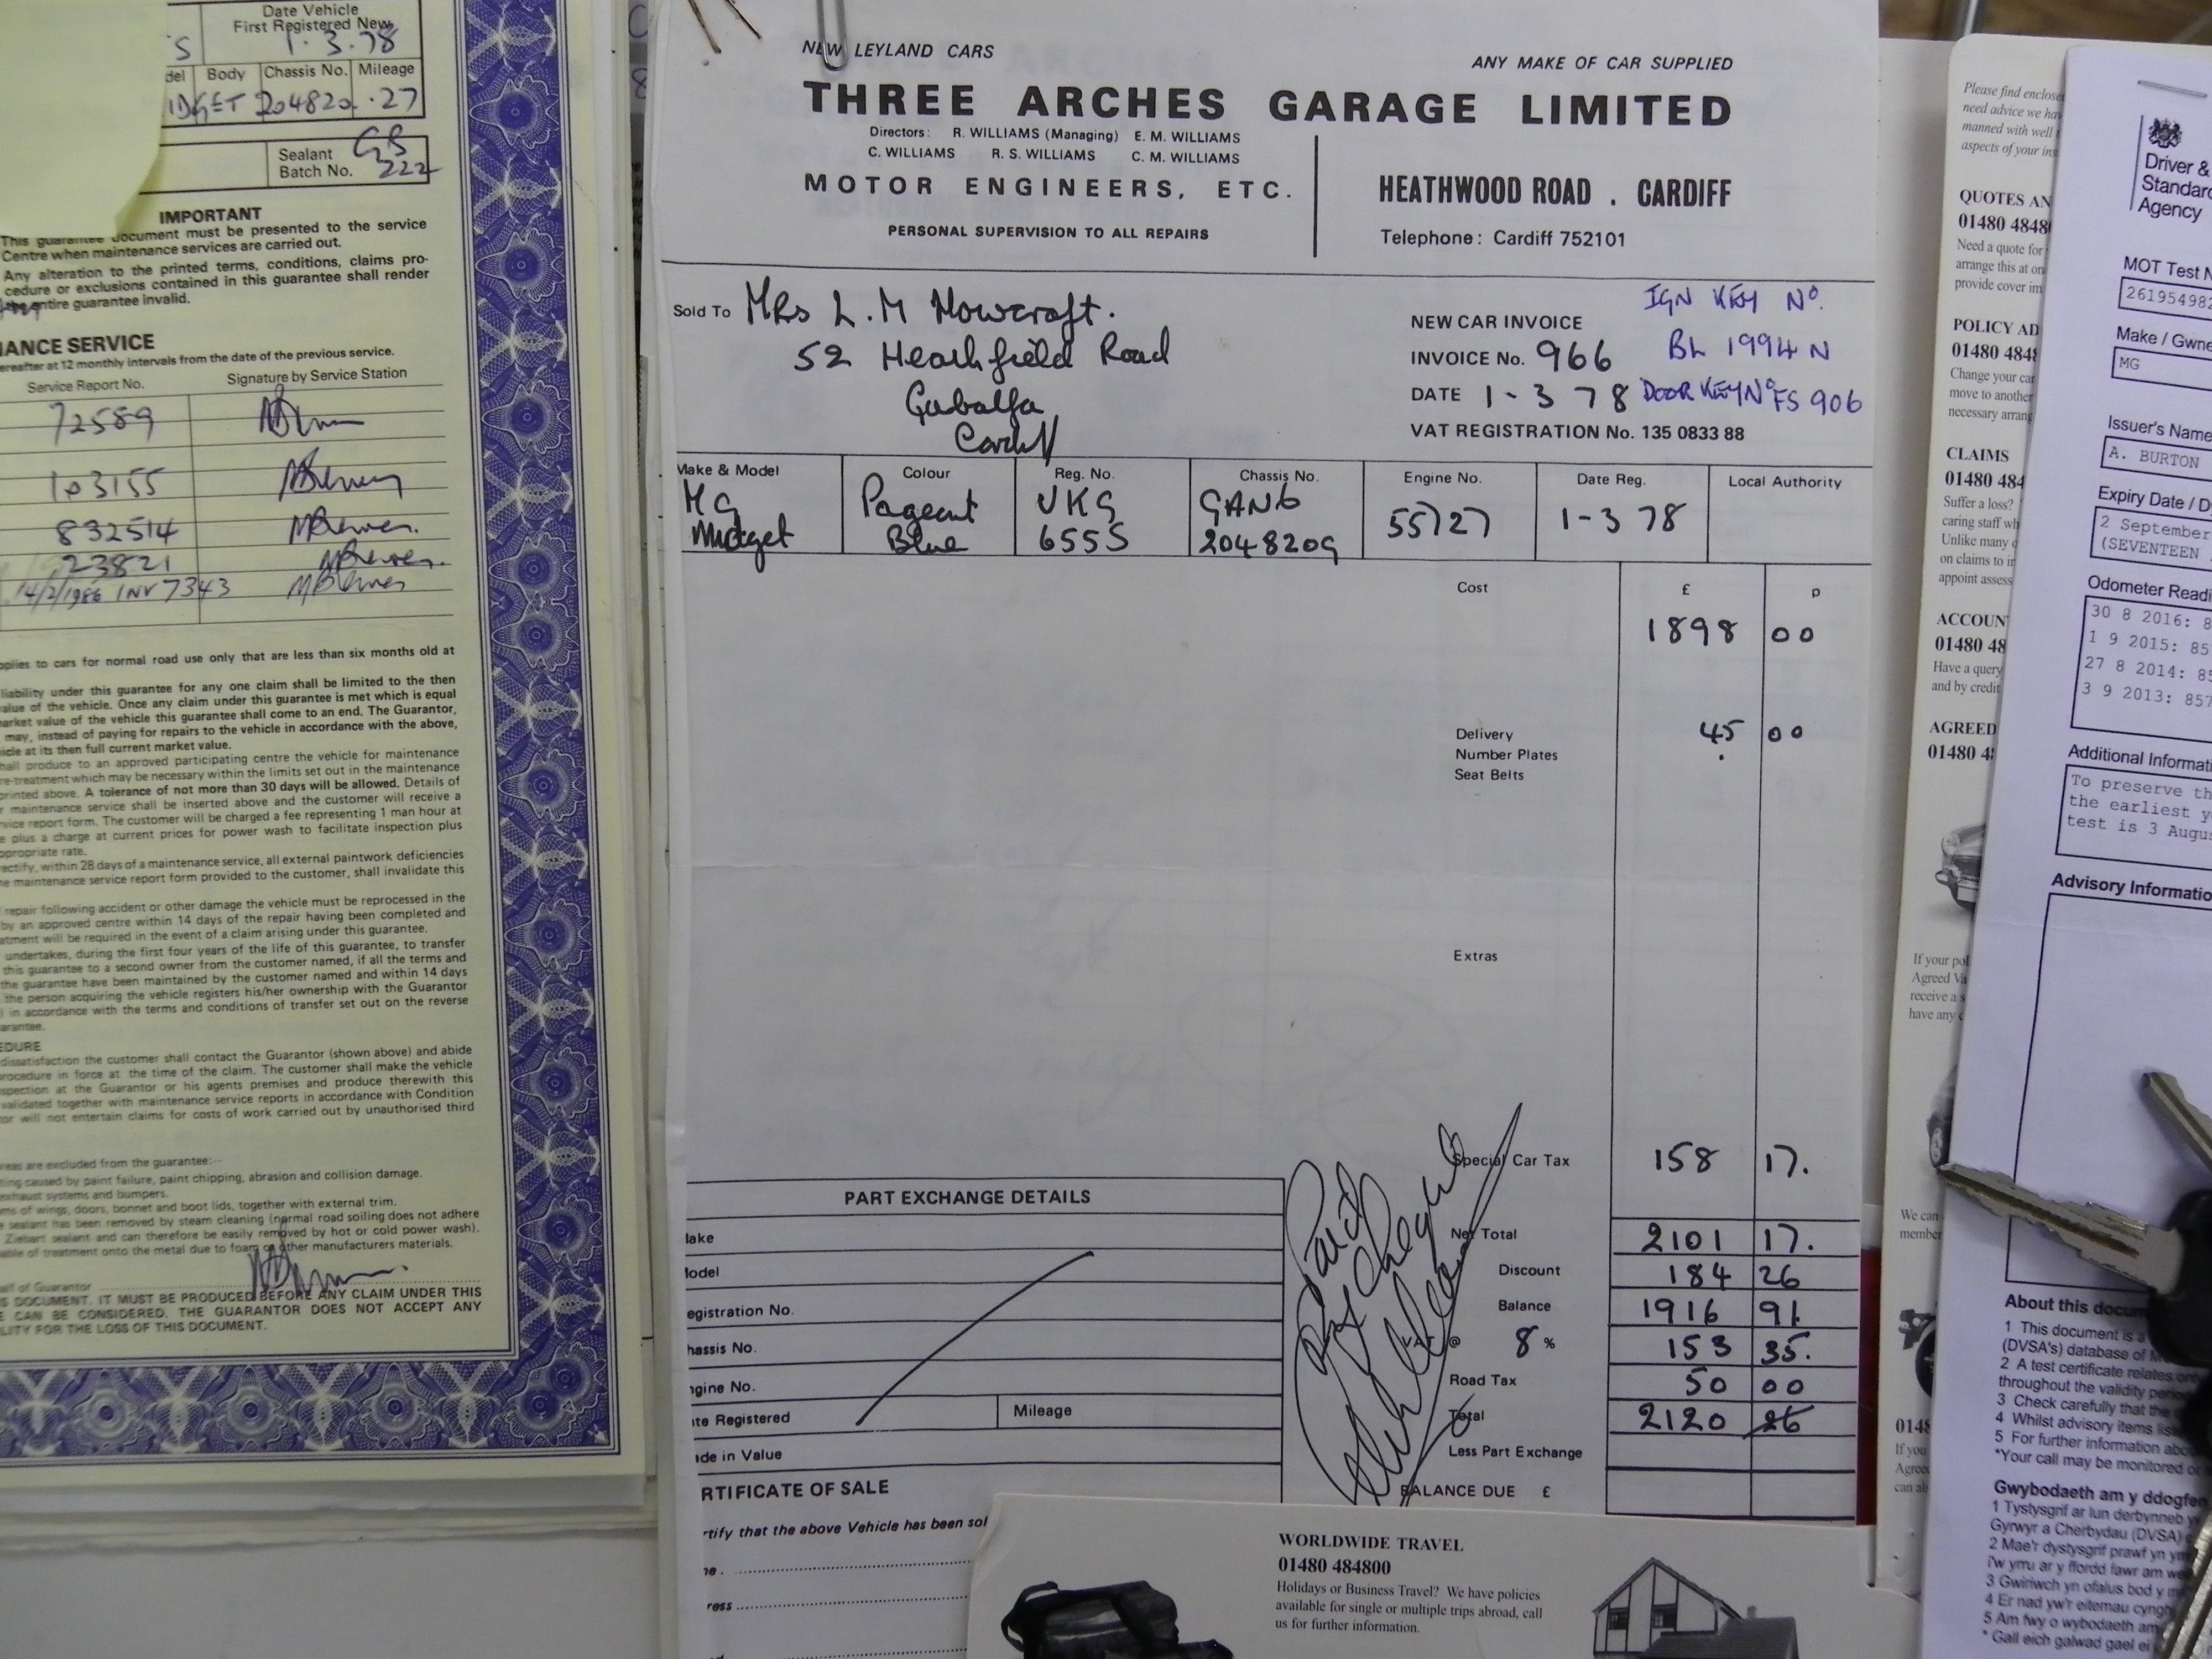 Date Vehicle
First Registered New
S 1.3.78
Body Chassis No. Mileage
204820 .27
Sealant
Batch No. GB
322
IMPORTANT
This guarantee document must be presented to the service
Centre when maintenance services are carried out.
Any alteration to the printed terms, conditions, claims pro-
cedure or exclusions contained in this guarantee shall render
the entire guarantee invalid.
SERVICE
at 12 monthly intervals from the date of the previous service.
Service Report No. Signature by Service Station
72589
103155
832514
23821
14/2/1986 INV 7343
to cars for normal road use only that are less than six months old at
liability under this guarantee for any one claim shall be limited to the then
value of the vehicle. Once any claim under this guarantee is met which is equal
market value of the vehicle this guarantee shall come to an end. The Guarantor,
may, instead of paying for repairs to the vehicle in accordance with the above,
at its then full current market value.
produce to an approved participating centre the vehicle for maintenance
re-treatment which may be necessary within the limits set out in the maintenance
printed above. A tolerance of not more than 30 days will be allowed. Details of
maintenance service shall be inserted above and the customer will receive a
report form. The customer will be charged a fee representing 1 man hour at
plus a charge at current prices for power wash to facilitate inspection plus
rate.
within 28 days of a maintenance service, all external paintwork deficiencies
maintenance service report form provided to the customer, shall invalidate this
repair following accident or other damage the vehicle must be reprocessed in the
by an approved centre within 14 days of the repair having been completed and
will be required in the event of a claim arising under this guarantee.
undertakes, during the first four years of the life of this guarantee, to transfer
this guarantee to a second owner from the customer named, if all the terms and
the guarantee have been maintained by the customer named and within 14 days
the person acquiring the vehicle registers his/her ownership with the Guarantor
in accordance with the terms and conditions of transfer set out on the reverse
dissatisfaction the customer shall contact the Guarantor (shown above) and abide
procedure in force at the time of the claim. The customer shall make the vehicle
at the Guarantor or his agents premises and produce therewith this
validated together with maintenance service reports in accordance with Condition
will not entertain claims for costs of work carried out by unauthorised third
are excluded from the guarantee:-
caused by paint failure, paint chipping, abrasion and collision damage.
exhaust systems and bumpers.
of wings, doors, bonnet and boot lids, together with external trim.
sealant has been removed by steam cleaning (normal road soiling does not adhere
Ziebart sealant and can therefore be easily removed by hot or cold power wash).
of treatment onto the metal due to foam or other manufacturers materials.
of Guarantor
DOCUMENT. IT MUST BE PRODUCED BEFORE ANY CLAIM UNDER THIS
CAN BE CONSIDERED. THE GUARANTOR DOES NOT ACCEPT ANY
FOR THE LOSS OF THIS DOCUMENT.
NEW LEYLAND CARS
ANY MAKE OF CAR SUPPLIED
THREE ARCHES GARAGE LIMITED
Directors: R. WILLIAMS (Managing) E. M. WILLIAMS
C. WILLIAMS R. S. WILLIAMS C. M. WILLIAMS
MOTOR ENGINEERS, ETC.
PERSONAL SUPERVISION TO ALL REPAIRS
HEATHWOOD ROAD . CARDIFF
Telephone: Cardiff 752101
Sold To Mrs L.M Howcroft.
52 Heathfield Road
Gabalfa
Cardiff
NEW CAR INVOICE
INVOICE No. 966
DATE 1-3 78
VAT REGISTRATION No. 135 0833 88
IGN KEY No.
BL 1994 N
DOOR KEY No FS 906
Make & Model Colour Reg. No. Chassis No. Engine No. Date Reg. Local Authority
MG Pageant VKG GAN6 55727 1-3 78
Midget Blue 655S 204820G
Cost £ p
1898 00
Delivery 45 00
Number Plates
Seat Belts
Extras
Special Car Tax 158 17.
Net Total 2101 17.
Discount 184 26
Balance 1916 91.
VAT @ 8 % 153 35.
Road Tax 50 00
Total 2120 26
Less Part Exchange
BALANCE DUE £
Paid
By Cheque
PART EXCHANGE DETAILS
Registered Mileage
in Value
OF SALE
that the above Vehicle has been
WORLDWIDE TRAVEL
01480 484800
Holidays or Business Travel? We have policies
available for single or multiple trips abroad, call
us for further information.
Please find
need advice we
manned with well
aspects of your
QUOTES
01480
Need a quote for
arrange this at
provide cover
POLICY
01480
Change your
move to another
necessary
CLAIMS
01480
Suffer a loss?
caring staff
Unlike many
on claims to
appoint
01480
Have a query
and by credit
AGREED
01480
If your
Agreed
receive a
have any
We can
Driver &
Agency
MOT Test
Make /
MG
Issuer's Name
A. BURTON
Expiry Date /
2 September
(SEVENTEEN
Odometer
30 8 2016:
1 9 2015:
27 8 2014:
3 9 2013:
Additional
To preserve
the earliest
test is 3
Advisory
About this
1 This document is a
(DVSA's) database of
2 A test certificate relates
throughout the validity
3 Check carefully that the
4 Whilst advisory items
5 For further information
*Your call may be monitored
Gwybodaeth am y